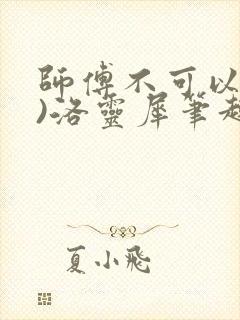 師傅不可以
)洛靈犀筆趣
夏小飛